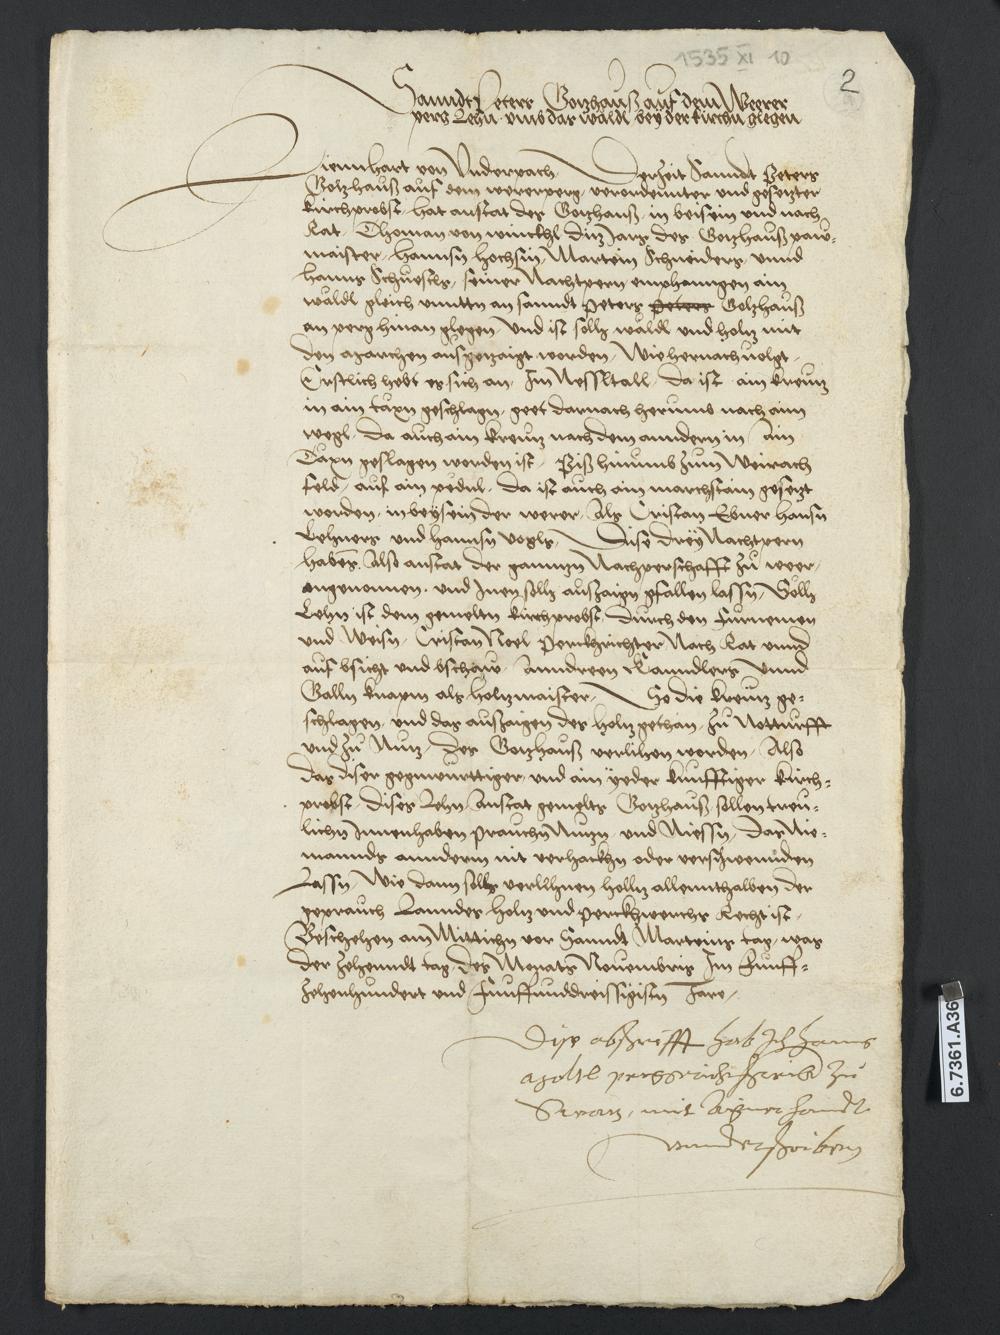 1535 XI 10
2
Sanndt Peters Gotzhauß auf dem Weerer
perg Lehn umb das waldl bey der kirchn glegen
Liennhart von Underpach, Derzeit Sanndt Peters
Gotzhauß auf dem wererperg, verordennter und gesetzter
kirchprobst, hat anstat des Gotzhauß, in beisein und nach
Rat, Thoman von winckhl ditz Jars des Gotzhauß paw-
maister, Hannsn hochsin, Martein Schneiders, unnd
hanns Schuestls, seiner Nachtpern emphanngen ain
waldl gleich unnttn an sanndt Peters Peters Gotzhauß
an perg hinan glegen, Und ist sollh waldl und holtz mit
den marchen ausgetzaigt worden, Wie hernach volgt,
Erstlich hebt es sich an, Im Nessltall, da ist ain kreutz
in ain taxn geschlagn, geet darnach herumb nach aim
wegl, da auch ain kreutz nach dem anndern in ain
Taxn geslagen worden ist, Piß hinumb zum Weirach
feld, auf ain pedul, da ist auch ain marchstain gesetzt
worden, in beysein der werer, Als Cristan Ebner hansn
Lehners und hannsn vogls, Dise drey Nachtpern
habens, Also anstat der ganntzn Nachperschafft zu weer
angenomen, und Inen sollh auszaign gfallen lassn, Sollh
Lehn ist dem gemeltn kirchprobst, durch den Furnemen
und Weisn, Cristan Noel Perckhrichter Nach Rat unnd
auf bsicht und bschaw, Anndreen Ranndlers unnd
Galln knapm als holtzmaister, So die kreutz ge-
schlagen, und das auszaigen des holtz gethan, zu Notturfft
und zu Nutz, des Gotzhauß verlihen worden, Also
das diser gegenwurttiger, und ain yeder kunfftiger kirch-
probst, dises Lehn, Anstat gemelts Gotzhauß sollen treu-
lichn Innenhaben prauchn Nutzn und Niessn, Das Nie-
mannds annderm nit verhackhn oder verschwennden
Lassn, Wie dann sollhs verlihnen holltz allennthalben der
geprauch Lanndes holtz und Perckhwerchs Recht ist,
Beschehen am Mittichn vor Sanndt Marteins tag, was
der zehenndt tag, des Monats Novembris Im Funff-
zehenhundert und Funffunddreissigistn Jare,
Dise abschrifft hab Ich Hanns
perggrichtschreiber zu
Swatz, mit aigner handt
unnderschriben
6.7361.A36